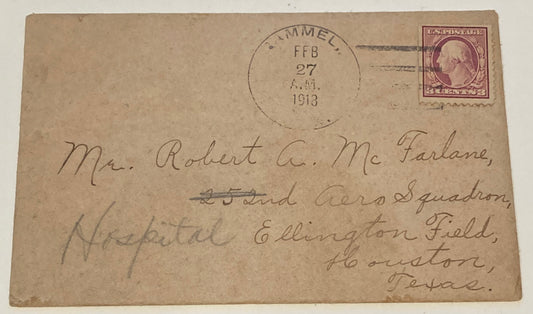 AMMEL,
FEB
27
A.M.
1913
U.S. POSTAGE
3 CENTS 3
Mr. Robert A. McFarlane,
252nd Aero Squadron,
Hospital Ellington Field,
Houston,
Texas.